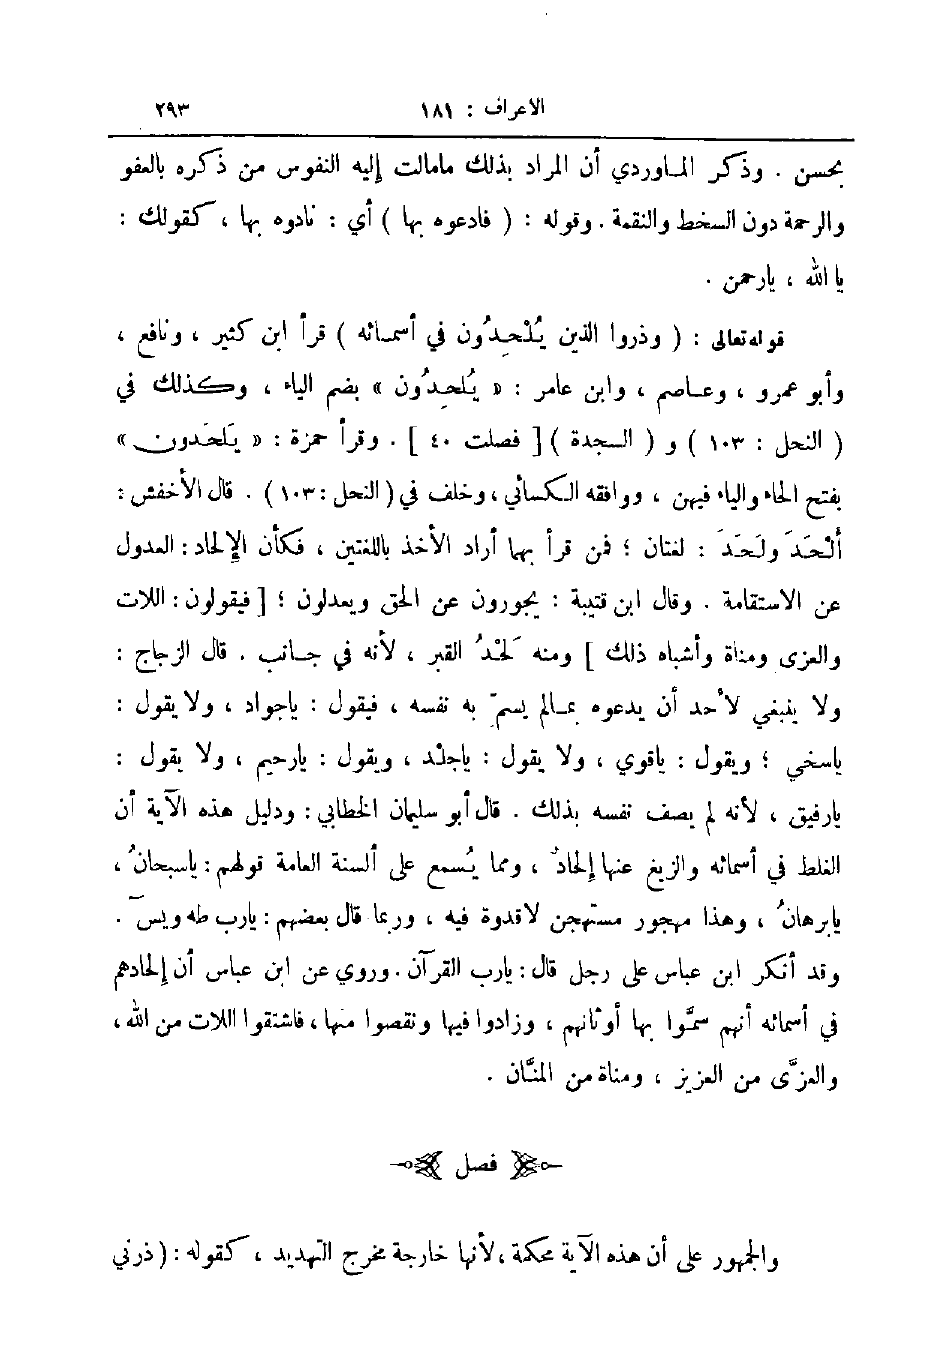 الاعراف : ١٨١ ٢٩٣
بحسن . وذكر المـاوردي أن المراد بذلك مامالت إليه النفوس من ذكره بالعفو
والرحمة دون السخط والنقمة . وقوله : ( فادعوه بها ) أي : نادوه بها ، كقولك :
يا الله ، يارحمن .
قوله تعالى : ( وذروا الذين يُلْحِدُون في أسمـائه ) قرأ ابن كثير ، ونافع ،
وأبو عمرو ، وعـاصم ، وابن عامر : « يُلحِدُون » بضم الياء ، وكذلك في
( النحل : ١٠٣ ) و ( السجدة ) [ فصلت ٤٠ ] . وقرأ حمزة : « يَلحَدون »
بفتح الحاء والياء فيهن ، ووافقه الكسائي ، وخلف في ( النحل : ١٠٣ ) . قال الأخفش :
أَلْحَدَ ولَحَدَ : لغتان ؛ فمن قرأ بهما أراد الأخذ باللغتين ، فكأن الإلحاد : العدول
عن الاستقامة . وقال ابن قتيبة : يجورون عن الحق ويعدلون ؛ [ فيقولون : اللات
والعزى ومناة وأشباه ذلك ] ومنه لَحْدُ القبر ، لأنه في جـانب . قال الزجاج :
ولا ينبغي لأحد أن يدعوه بمـالم يسمّ به نفسه ، فيقول : ياجواد ، ولا يقول :
ياسخي ؛ ويقول : ياقوي ، ولا يقول : ياجلْد ، ويقول : يارحيم ، ولا يقول :
يارفيق ، لأنه لم يصف نفسه بذلك . قال أبو سليمان الخطابي : ودليل هذه الآية أن
الغلط في أسمائه والزيغ عنها إلحادٌ ، ومما يُسمع على ألسنة العامة قولهم : ياسبحانُ ،
يابرهانُ ، وهذا مهجور مستهجن لا قدوة فيه ، وربما قال بعضهم : يارب طه ويسٓ .
وقد أنكر ابن عباس على رجل قال : يارب القرآن . وروي عن ابن عباس أن إلحادهم
في أسمائه أنهم سمَّوا بها أوثانهم ، وزادوا فيها ونقصوا منها ، فاشتقوا اللات من الله ،
والعزَّى من العزيز ، ومناة من المنَّان .
فصل
والجمهور على أن هذه الآية محكمة ، لأنها خارجة مخرج التهديد ، كقوله : ( ذرني